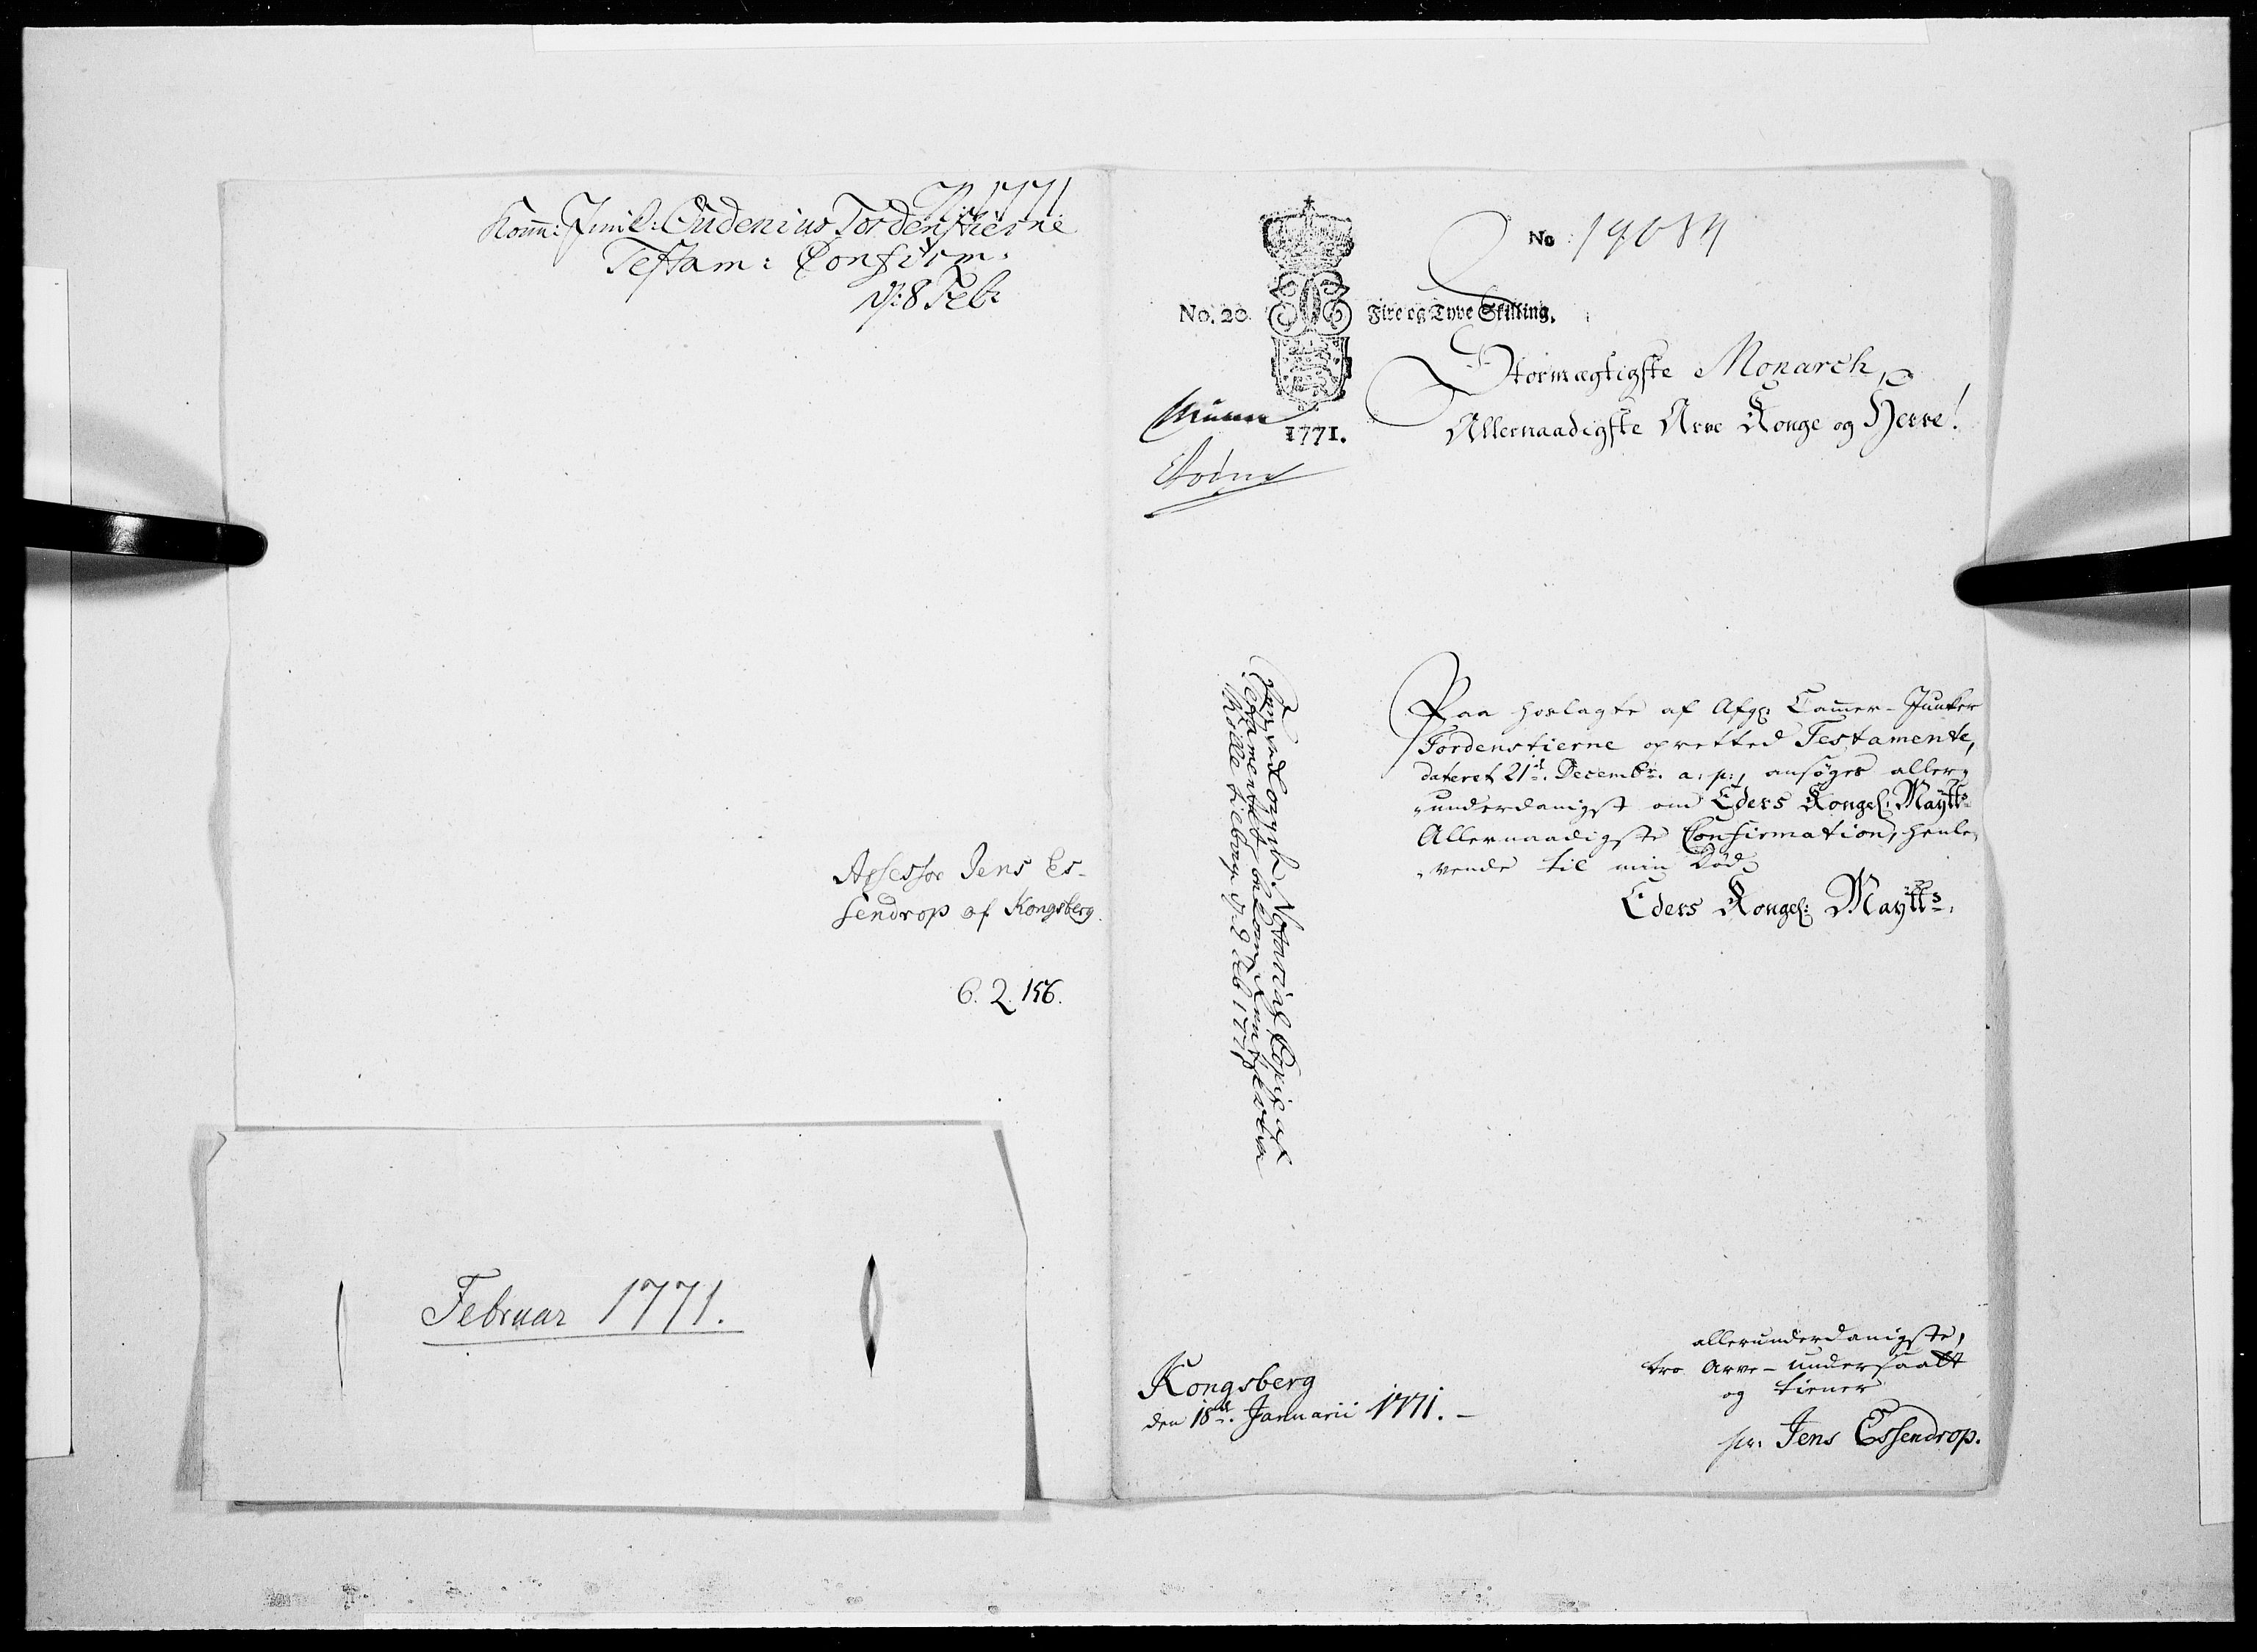 1771
Tordenstierne
Testam: Confirm:
d: 8 Feb:
Assessor Jens Es-
sendrop af Kongsberg.
6. 2. 156.
Februar 1771.
No
No. 20. Fire og Tyve Skilling.
1771.
Stormægtigste Monarch,
Allernaadigste Arve Konge og Herre!
Paa hoslagte af Afgl: Cammer-Junker
Tordenstierne opretted Testamente,
dateret 21d. Decembr. a: p:, ansøges aller-
underdanigst om Eders Kongel: Maytts
Allernaadigste Confirmation, henle-
vende til min Død
Eders Kongel: Maytts
Notarial Copie af
Testamentet
tilbage d. 9 Feb 1771
Kongsberg
den 18d. Januarii 1771.-
allerunderdanigste,
tro Arve-undersaatt
og tiener
Jens Essendrop.